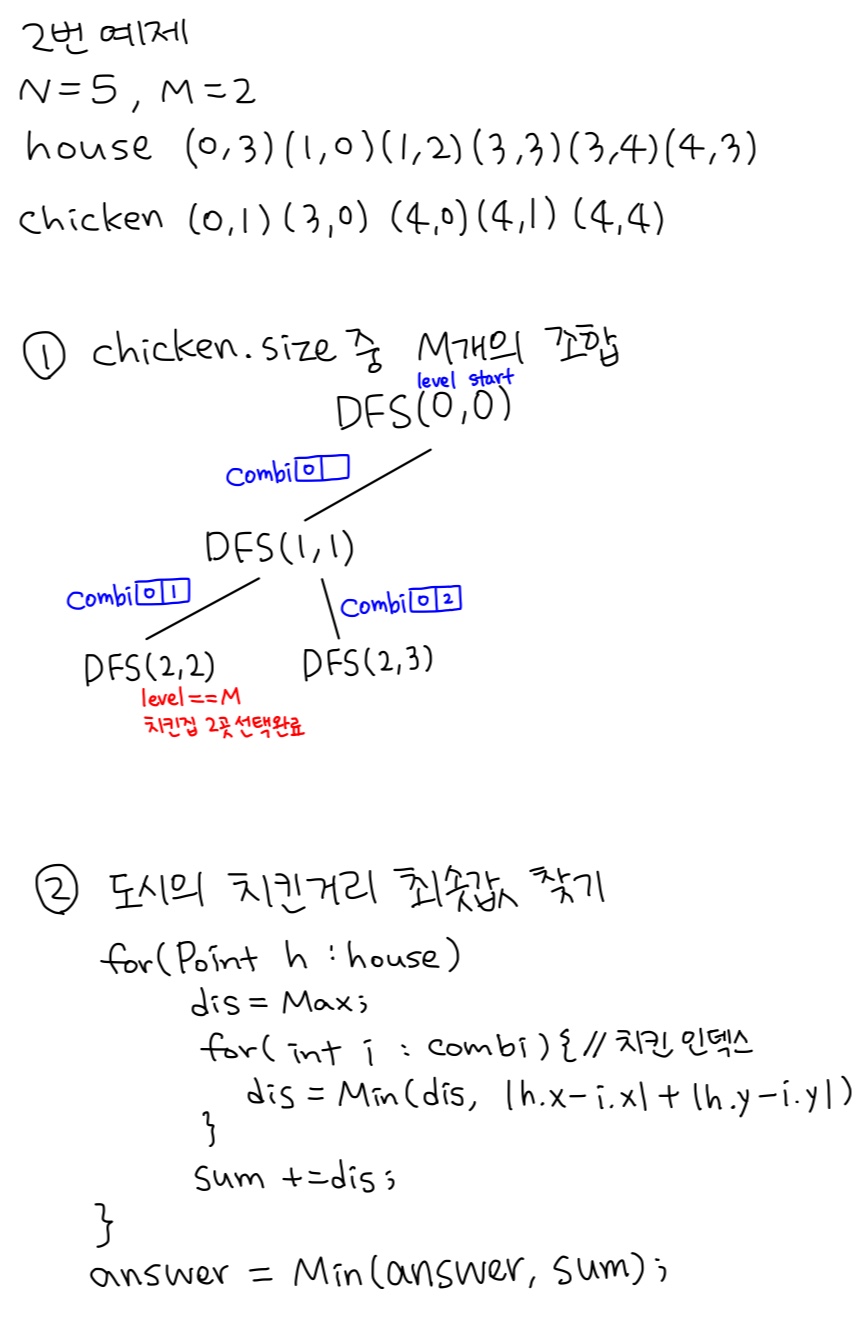 2번 예제
N=5, M=2
house (0,3)(1,0)(1,2)(3,3)(3,4)(4,3)
chicken (0,1)(3,0) (4,0)(4,1) (4,4)
① chicken.size 중 M개의 조합
level start
DFS(0,0)
Combi 0
DFS(1,1)
Combi 0 1
Combi 0 2
DFS(2,2) DFS(2,3)
level==M
치킨집 2곳 선택완료
② 도시의 치킨거리 최솟값 찾기
for(Point h : house)
dis = Max;
for( int i : combi){ // 치킨 인덱스
dis = Min(dis, |h.x-i.x| + |h.y-i.y|)
}
sum +=dis;
}
answer = Min(answer, sum);